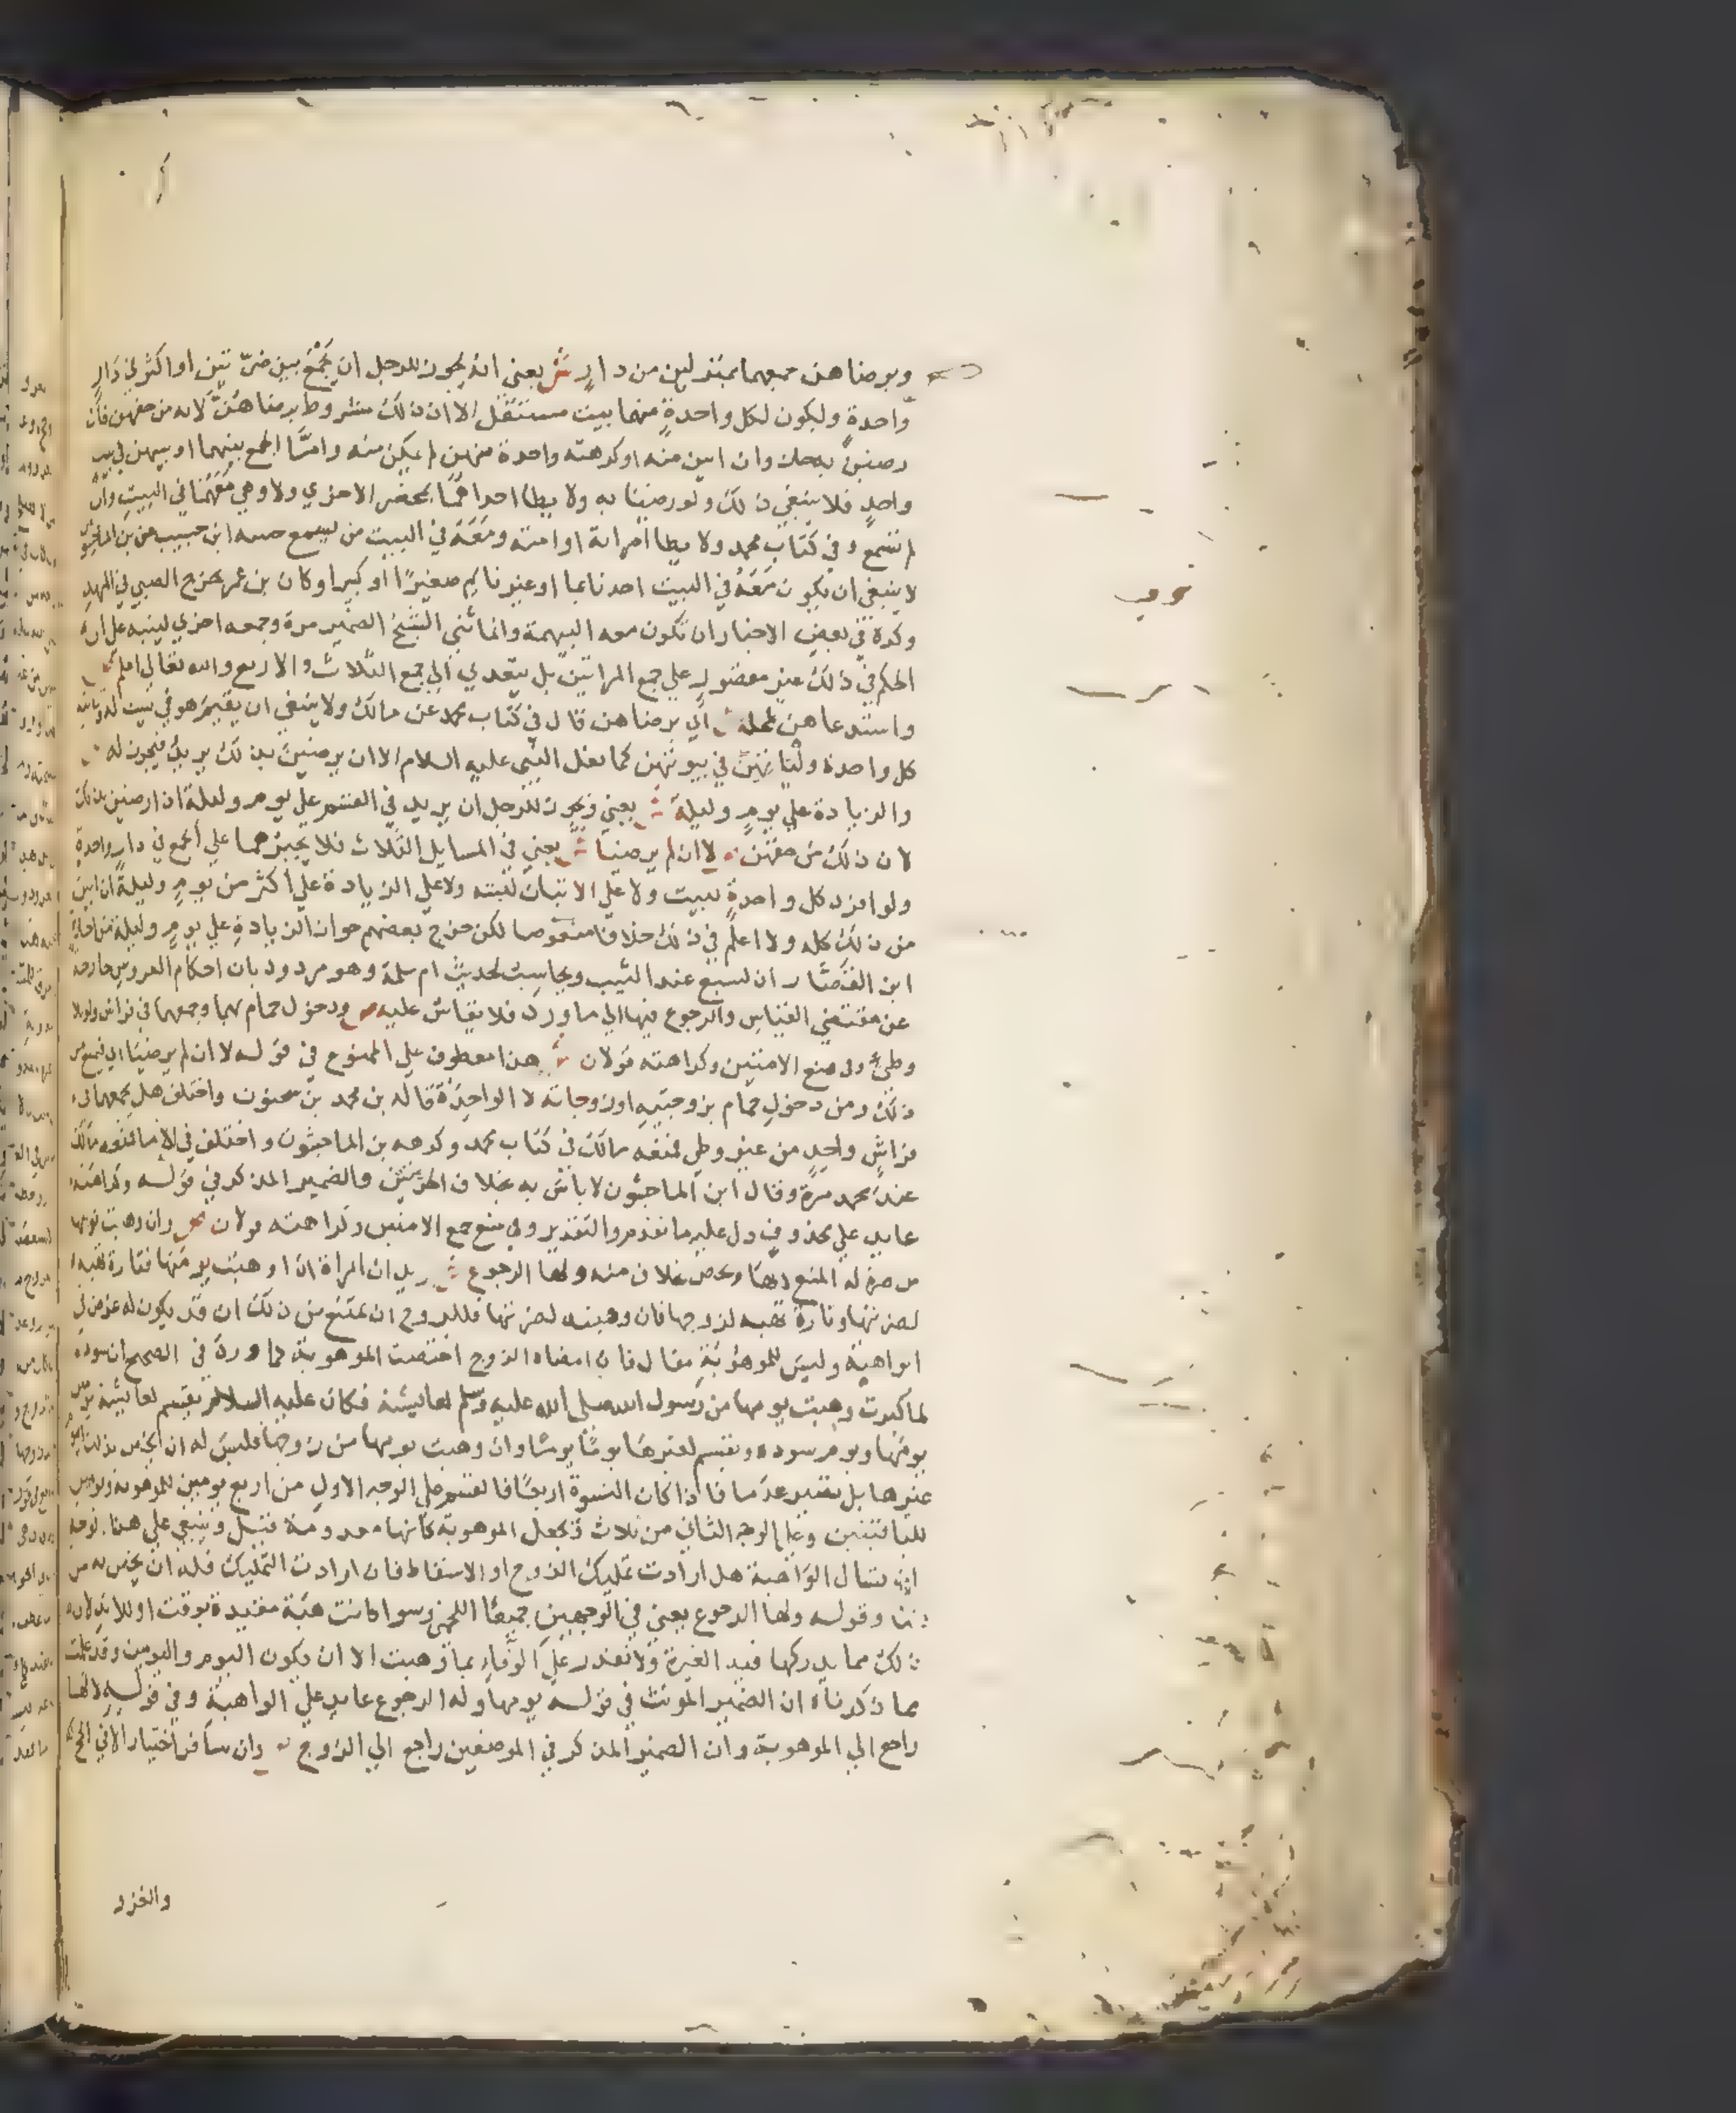 وبرضاهن جمعهما بمنزلين من دار ش يعني انه يجوز للرجل ان يجمع بين ضرتين او اكثر في دار
واحدة وليكون لكل واحدة منهما بيت مستقل الا ان ذلك مشروط برضاهن لانه من حقهن فان
رضين به جاز وان ابين منه او كرهته واحدة منهن لم يمكن منه واما الجمع بينهما او بينهن في بيت
واحد فلا ينبغي ذلك ولو رضينا به ولا يطا احداهما بمحضر الاخري ولا وهي معهما في البيت وان
لم تسمع وفي كتاب محمد ولا يطا امراته او امته ومعه في البيت من يسمع حسه ابن حبيب عن بن الماجشون
لا ينبغي ان يكون معه في البيت احد نايما او غير نايم صغيرا او كبيرا وكان بن عمر يخرج الصبي في المهد
وكره في بعض الاخبار ان تكون معه البهيمة وانما ثني الشيخ الضمير مرة وجمعه اخري لينبه علي ان
الحكم في ذلك غير مقصور علي جمع المراتين بل يتعدي الي جمع الثلاث والاربع والله تعالي اعلم
واستدعاهن لمحله ش اي برضاهن قال في كتاب محمد عن مالك ولا ينبغي ان يقيم هو في بيت له وتاتيه
كل واحدة وليأتهن في بيوتهن كما فعل النبي عليه السلام الا ان يرضين بذلك فيجوز له
والزيادة علي يوم وليلة ش يعني ويجوز للرجل ان يزيد في القسم علي يوم وليلة اذا رضين بذلك
لان ذلك من حقهن لا ان لم يرضيا ش يعني في المسايل الثلاث فلا يجبرهما علي الجمع في دار واحدة
ولو افرد كل واحدة ببيت ولا علي الاتيان لبيته ولا علي الزيادة علي اكثر من يوم وليلة ان ابين
من ذلك كله ولا اعلم في ذلك خلافا منصوصا لكن خرج بعضهم جواز الزيادة علي يوم وليلة من اجازة
ابن القصار ان لسبع عند الثيب ويحاسب لحديث ام سلمة وهو مردود بان احكام العروس خارجة
عن مقتضي القياس والرجوع فيها الي ما ورد فلا يقاس عليه ص ودخول حمام بهما وجمعهما في فراش ولو بلا
وطئ وفي منع الامتين وكراهته قولان ش هذا معطوف علي الممنوع في قوله لا ان لم يرضيا اي فيمنع من
ذلك ومن دخول حمام بزوجتيه او زوجاته لا الواحدة قاله بن محمد بن سحنون واختلف هل يجمعهما في
فراش واحد من غير وطي فمنعه مالك في كتاب محمد وكرهه بن الماجشون واختلف في الاما فمنعه مالك
عند محمد مرة وقال ابن الماجشون لا باس به بخلاف الحرتين والضمير المذكر في قوله وكراهته
عايد علي محذوف دل عليه ما تقدم والتقدير وفي منع جمع الامتين وكراهته قولان ص وان وهبت نوبتها
من ضرة له المنع لا لها وتختص بخلاف منه ولها الرجوع ش يريد ان المراة اذا وهبت يومها فتارة تهبه
لضرتها وتارة تهبه لزوجها فان وهبته لضرتها فللزوج ان يمتنع من ذلك اذ قد يكون له غرض في
الواهبة وليس للموهوبة مقال فان امضاه الزوج اختصت الموهوبة كما ورد في الصحيح ان سودة
لما كبرت وهبت يومها من رسول الله صلي الله عليه وسلم لعايشة فكان عليه السلام يقسم لعايشة يومين
يومها ويوم سودة ويقسم لغيرها يوما يوما وان وهبت يومها من زوجها فليس له ان يخص بذلك اليوم
غيرها بل تصير عدما فاذا كان النسوة اربعا فالقسم علي الوجه الاول من اربع يومين للموهوبة ويومين
للباقيتين وعلي الوجه الثاني من ثلاث وتجعل الموهوبة كانها معدومة فتبل وينبغي علي هذا الوجه
ان تسال الواهبة هل ارادت تمليك الزوج او الاسقاط فان ارادت التمليك فله ان يخص به من
شا وقوله ولها الرجوع يعني في الوجهين جميعا اللخمي وسوا كانت هبة مقيدة بوقت او للابد لان
ذلك مما يدركها فيه الغيرة ولا تقدر علي الوفاء بما وهبت الا ان يكون اليوم واليومين وقد علمت
مما ذكرناه ان الضمير المونث في قوله يومها وله الرجوع عايد علي الواهبة وفي قوله لا لها
راجع الي الموهوبة وان الضمير المذكر في الموضعين راجع الي الزوج ص وان سافر اختار الا في الحج
والغزو